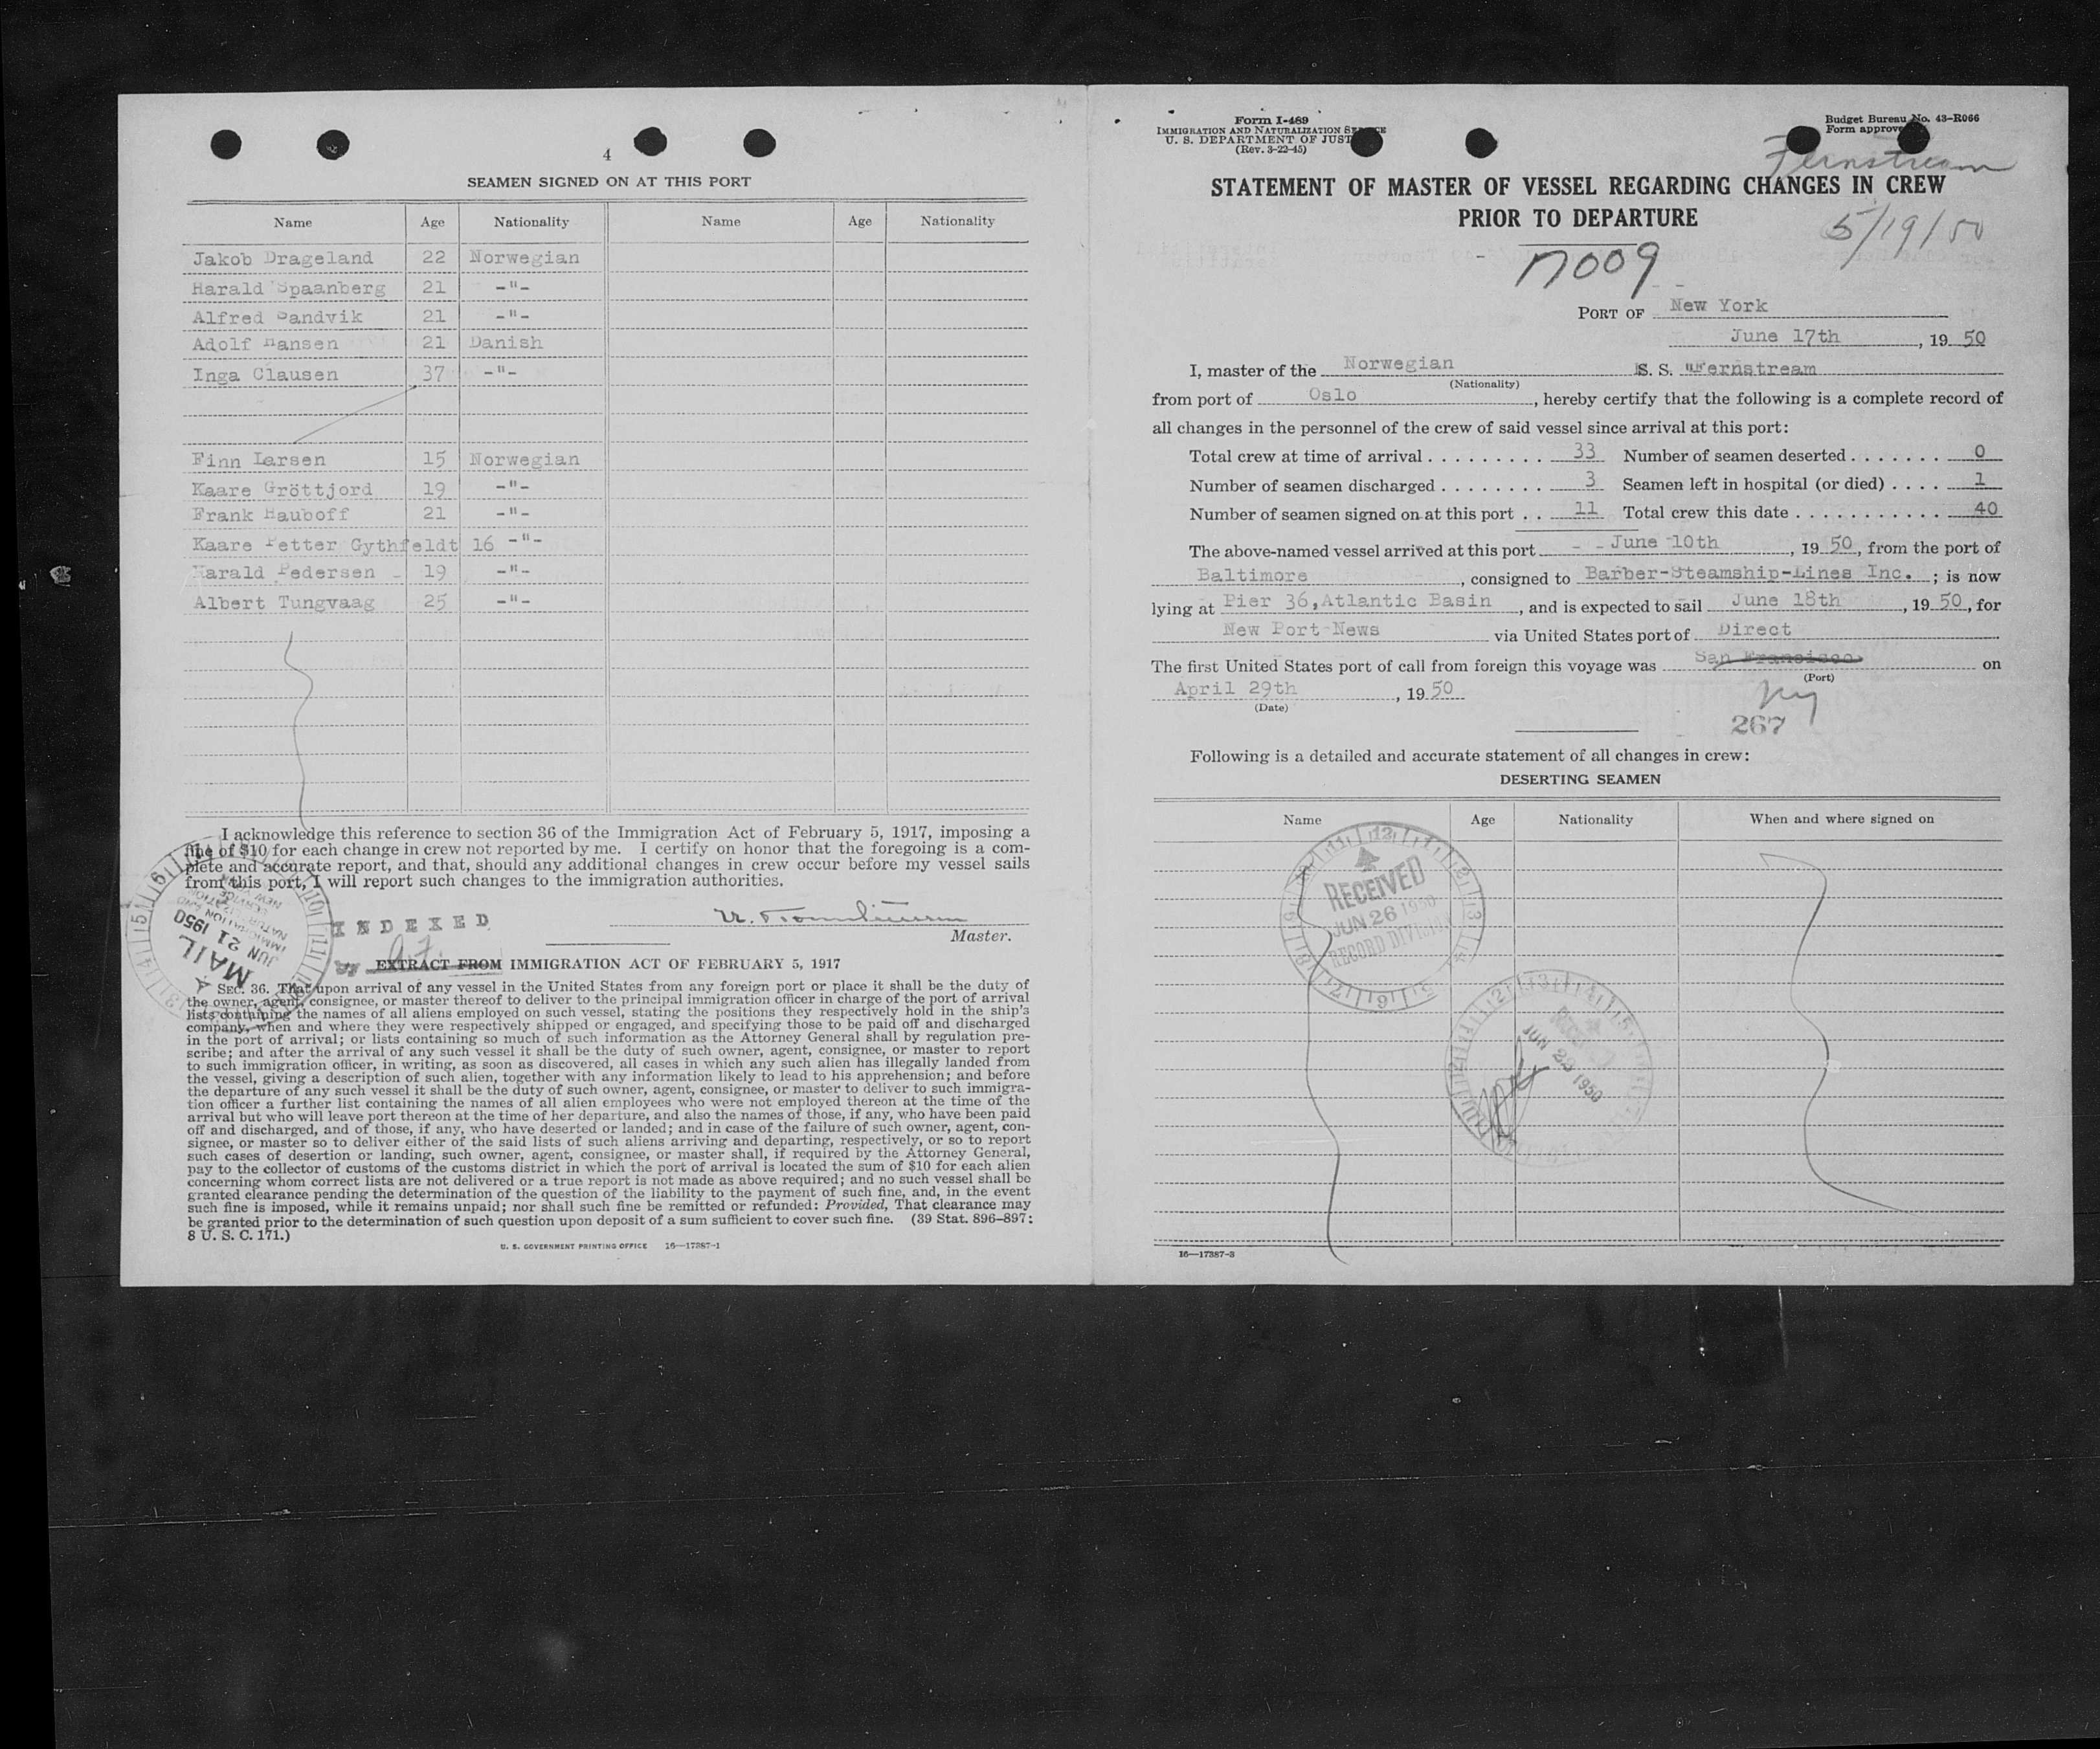 4
SEAMEN SIGNED ON AT THIS PORT
Name Age Nationality Name Age Nationality
Jakob Drageland 22 Norwegian
Harald Spaanberg 21 -"-
Alfred Sandvik 21 -"-
Adolf Hansen 21 Danish
Inga Clausen 37 -"-
Finn Larsen 15 Norwegian
Kaare Gröttjord 19 -"-
Frank Hauboff 21 -"-
Kaare Petter Gythfeldt 16 -"-
Harald Pedersen 19 -"-
Albert Tungvaag 25 -"-
I acknowledge this reference to section 36 of the Immigration Act of February 5, 1917, imposing a
fine of $10 for each change in crew not reported by me. I certify on honor that the foregoing is a com-
plete and accurate report, and that, should any additional changes in crew occur before my vessel sails
from this port, I will report such changes to the immigration authorities.
INDEXED
Master.
MAIL
JUN 21 1950
EXTRACT FROM IMMIGRATION ACT OF FEBRUARY 5, 1917
SEC. 36. That upon arrival of any vessel in the United States from any foreign port or place it shall be the duty of
the owner, agent, consignee, or master thereof to deliver to the principal immigration officer in charge of the port of arrival
lists containing the names of all aliens employed on such vessel, stating the positions they respectively hold in the ship's
company, when and where they were respectively shipped or engaged, and specifying those to be paid off and discharged
in the port of arrival; or lists containing so much of such information as the Attorney General shall by regulation pre-
scribe; and after the arrival of any such vessel it shall be the duty of such owner, agent, consignee, or master to report
to such immigration officer, in writing, as soon as discovered, all cases in which any such alien has illegally landed from
the vessel, giving a description of such alien, together with any information likely to lead to his apprehension; and before
the departure of any such vessel it shall be the duty of such owner, agent, consignee, or master to deliver to such immigra-
tion officer a further list containing the names of all alien employees who were not employed thereon at the time of the
arrival but who will leave port thereon at the time of her departure, and also the names of those, if any, who have been paid
off and discharged, and of those, if any, who have deserted or landed; and in case of the failure of such owner, agent, con-
signee, or master so to deliver either of the said lists of such aliens arriving and departing, respectively, or so to report
such cases of desertion or landing, such owner, agent, consignee, or master shall, if required by the Attorney General,
pay to the collector of customs of the customs district in which the port of arrival is located the sum of $10 for each alien
concerning whom correct lists are not delivered or a true report is not made as above required; and no such vessel shall be
granted clearance pending the determination of the question of the liability to the payment of such fine, and, in the event
such fine is imposed, while it remains unpaid; nor shall such fine be remitted or refunded: Provided, That clearance may
be granted prior to the determination of such question upon deposit of a sum sufficient to cover such fine. (39 Stat. 896–897;
8 U. S. C. 171.)
U. S. GOVERNMENT PRINTING OFFICE 16—17387-1
Form I-489
IMMIGRATION AND NATURALIZATION SERVICE
U. S. DEPARTMENT OF JUST
(Rev. 3-22-45)
Budget Bureau No. 43-R066
Form approve
Fernstream
STATEMENT OF MASTER OF VESSEL REGARDING CHANGES IN CREW
PRIOR TO DEPARTURE
5/19/50
PORT OF New York
June 17th, 19 50
I, master of the Norwegian S. S. "Fernstream
(Nationality)
from port of Oslo, hereby certify that the following is a complete record of
all changes in the personnel of the crew of said vessel since arrival at this port:
Total crew at time of arrival . . . . . . . . . 33 Number of seamen deserted . . . . . . . 0
Number of seamen discharged . . . . . . . . 3 Seamen left in hospital (or died) . . . . 1
Number of seamen signed on at this port . . 11 Total crew this date . . . . . . . . . . . 40
The above-named vessel arrived at this port June 10th, 19 50, from the port of
Baltimore, consigned to Barber-Steamship-Lines Inc. ; is now
lying at Pier 36, Atlantic Basin, and is expected to sail June 18th, 19 50, for
New Port News via United States port of Direct
The first United States port of call from foreign this voyage was San Francisco on
(Port)
April 29th, 19 50
(Date)
ny
267
Following is a detailed and accurate statement of all changes in crew:
DESERTING SEAMEN
Name Age Nationality When and where signed on
RECEIVED
JUN 26 1950
RECORD DIVISION
JUN 23 1950
16—17387-3